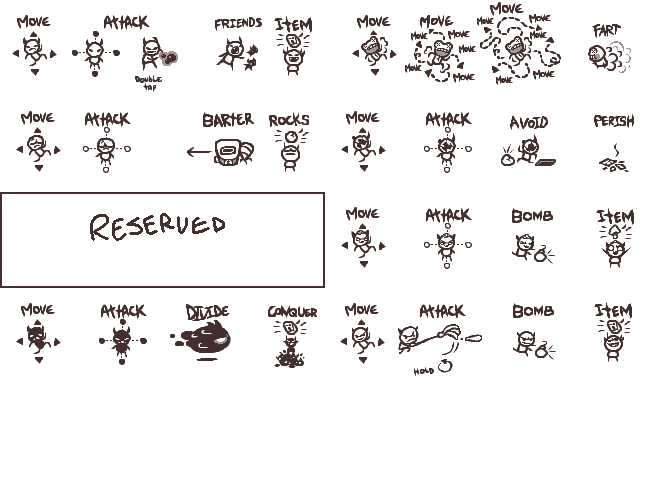 MOVE ATTACK FRIENDS ITEM
DOUBLE
TAP
MOVE MOVE MOVE FART
MOVE MOVE MOVE MOVE MOVE
MOVE MOVE MOVE MOVE
MOVE ATTACK BARTER ROCKS
MOVE ATTACK AVOID PERISH
RESERVED
MOVE ATTACK BOMB ITEM
MOVE ATTACK DIVIDE CONQUER
MOVE ATTACK BOMB ITEM
HOLD